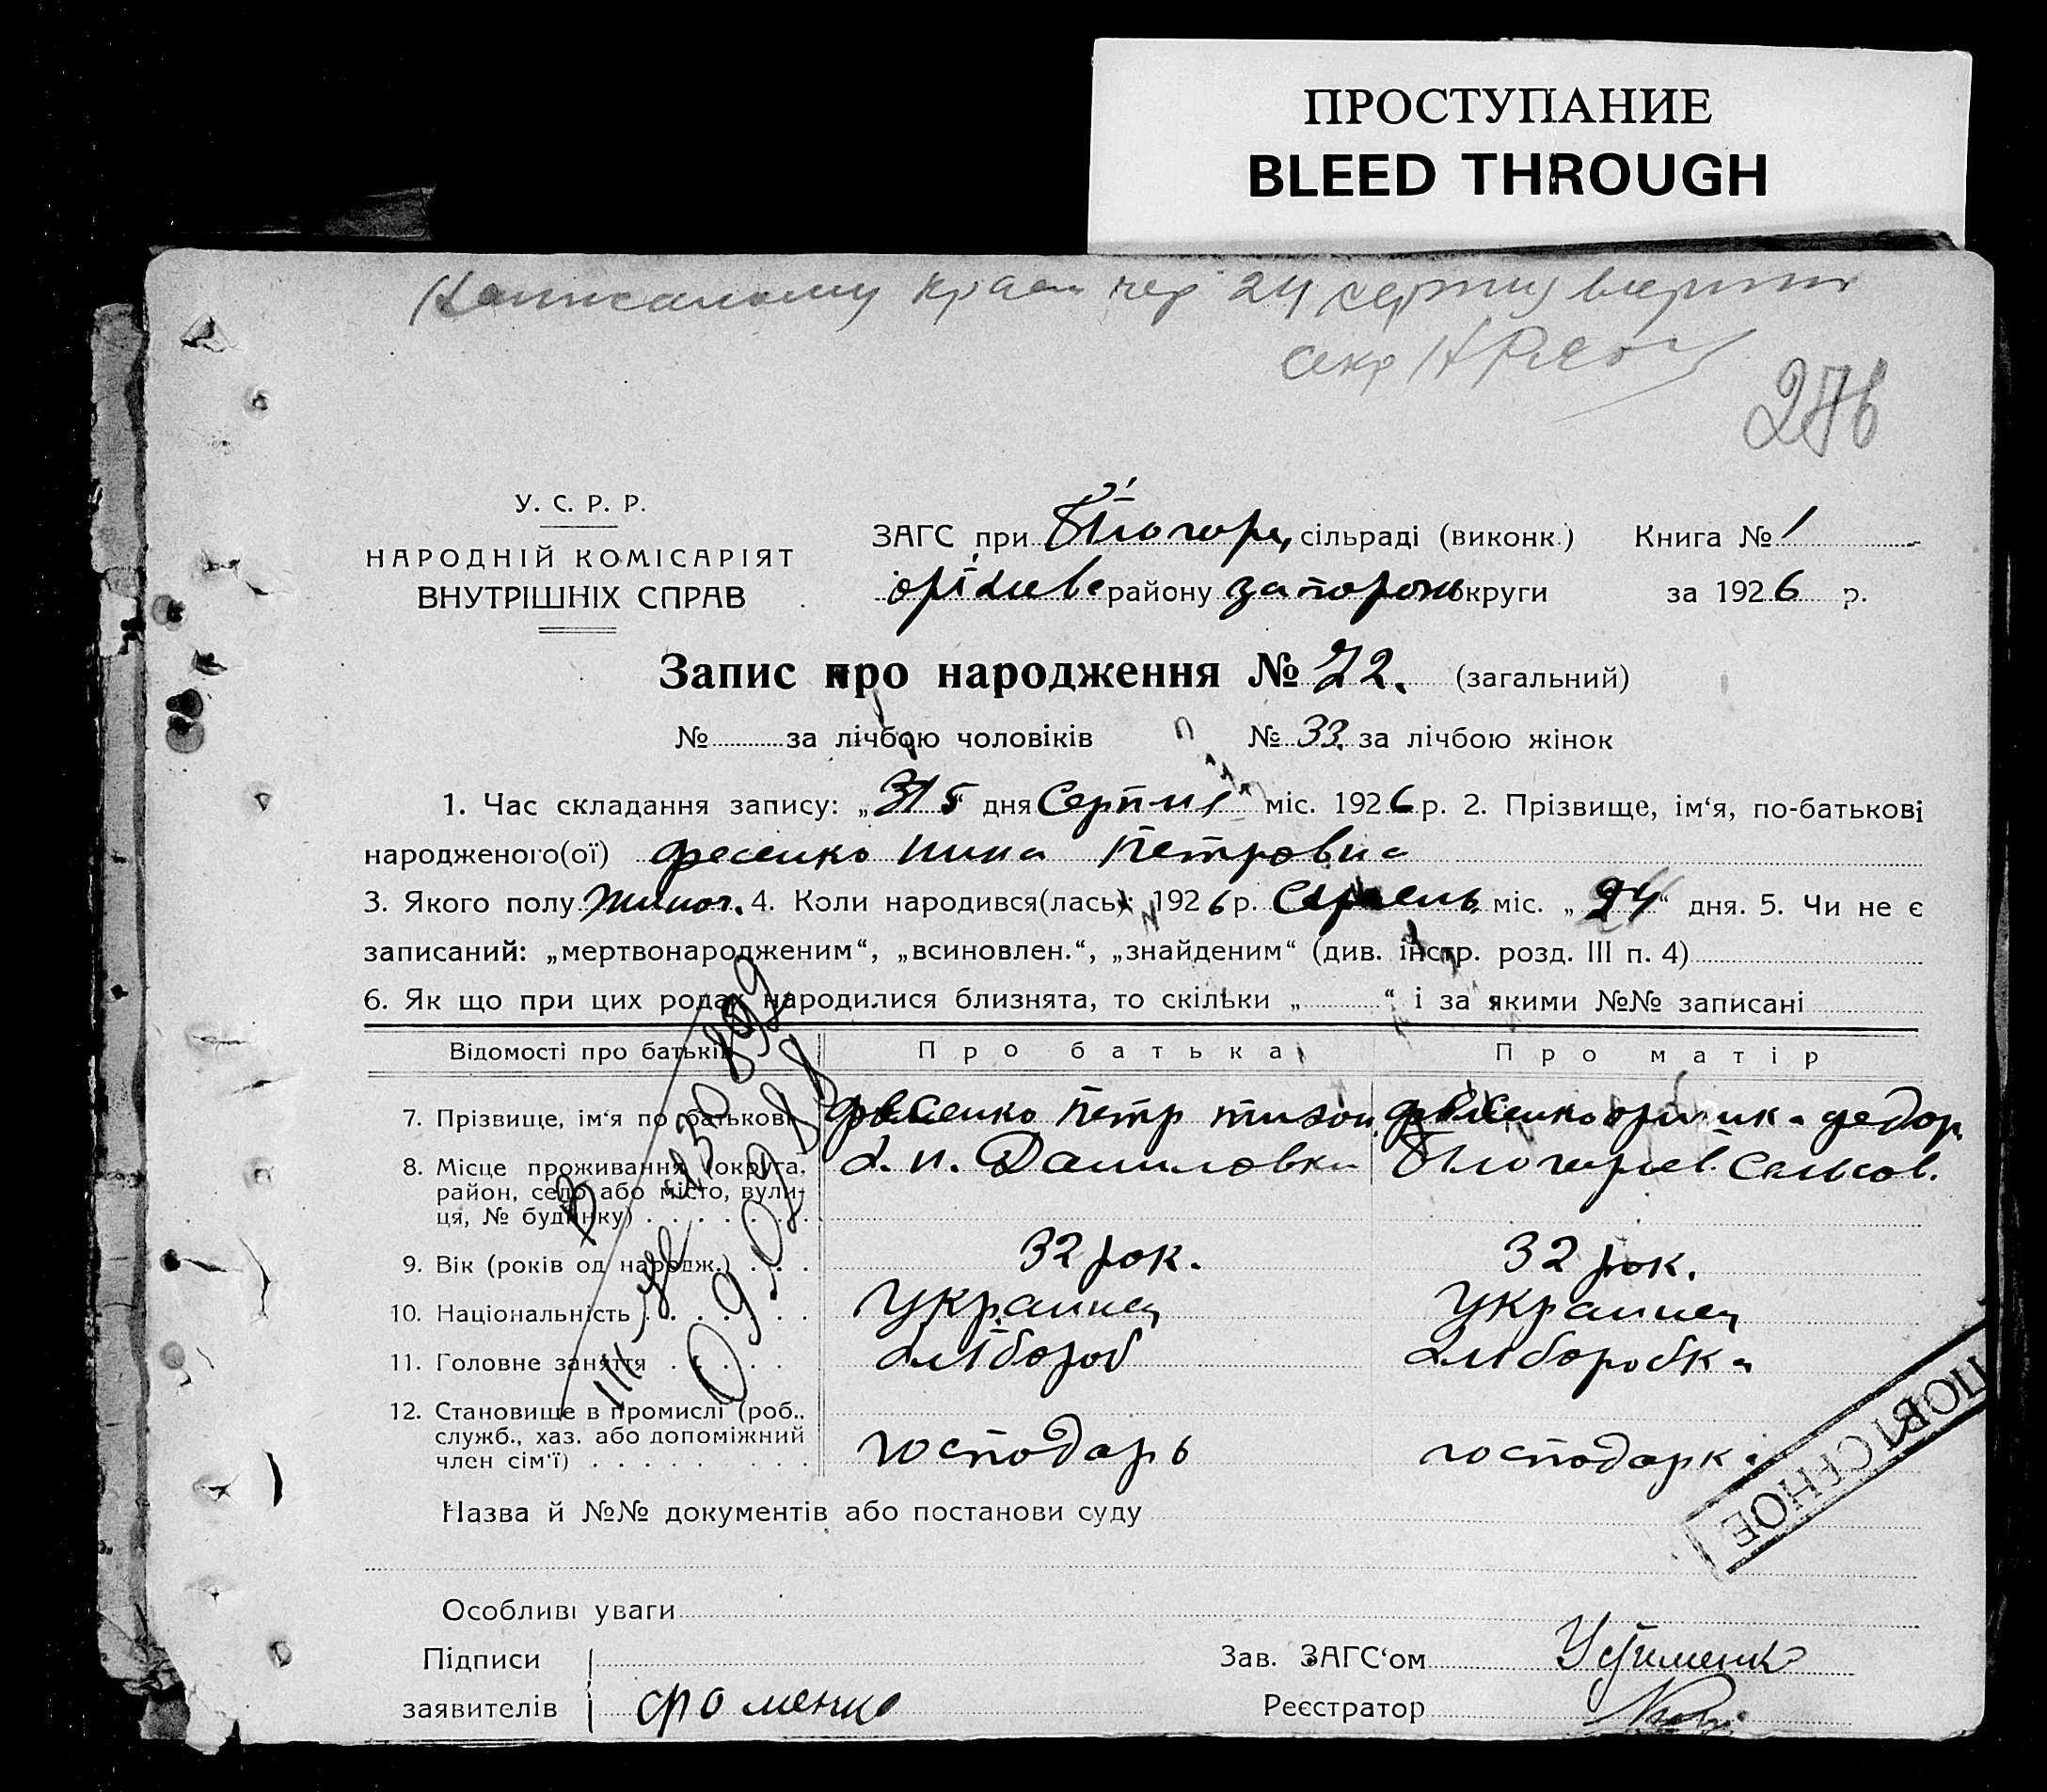 ПРОСТУПАНИЕ
BLEED THROUGH
24
276
У. С. Р. Р.
НАРОДНІЙ КОМІСАРІЯТ
ВНУТРІШНІХ СПРАВ
ЗАГС при сільраді (виконк.) Книга № 1
оріхивс району запорож округи за 1926 р.
Запис про народження № 72. (загальний)
№ за лічбою чоловіків № 33. за лічбою жінок
1. Час складання запису: „ “ дня Серпня міс. 1926 р. 2. Прізвище, ім‘я, по-батькові
народженого(ої) Фесенко Нина Петровна
3. Якого полу жиноч. 4. Коли народився(лась): 1926 р. Серпень міс. „24“ дня. 5. Чи не є
записаний: „мертвонародженим“, „всиновлен.“, „знайденим“ (див. інстр. розд. III п. 4)
6. Як що при цих родах народилися близнята, то скільки „ “ і за якими №№ записані
Відомості про батьків Про батька Про матір
7. Прізвище, ім‘я по батькові Фесенко Петр Тихон Фесенко Оришка Федор
8. Місце проживання (округа, х. н. Даниловка
район, село або місто, вули-
ця, № будинку)
9. Вік (років од народж.) 32 рок. 32 рок.
10. Національність Украинец Украинец
11. Головне заняття хлібороб хлиборобка
12. Становище в промислі (роб.,
служб., хаз. або допоміжний господарь господарка
член сім‘ї)
III
09.09.88
Назва й №№ документів або постанови суду
Особливі уваги
Підписи Зав. ЗАГС‘ом Устименко
заявителів Фоменко Реєстратор
ПОВТОРНОЕ